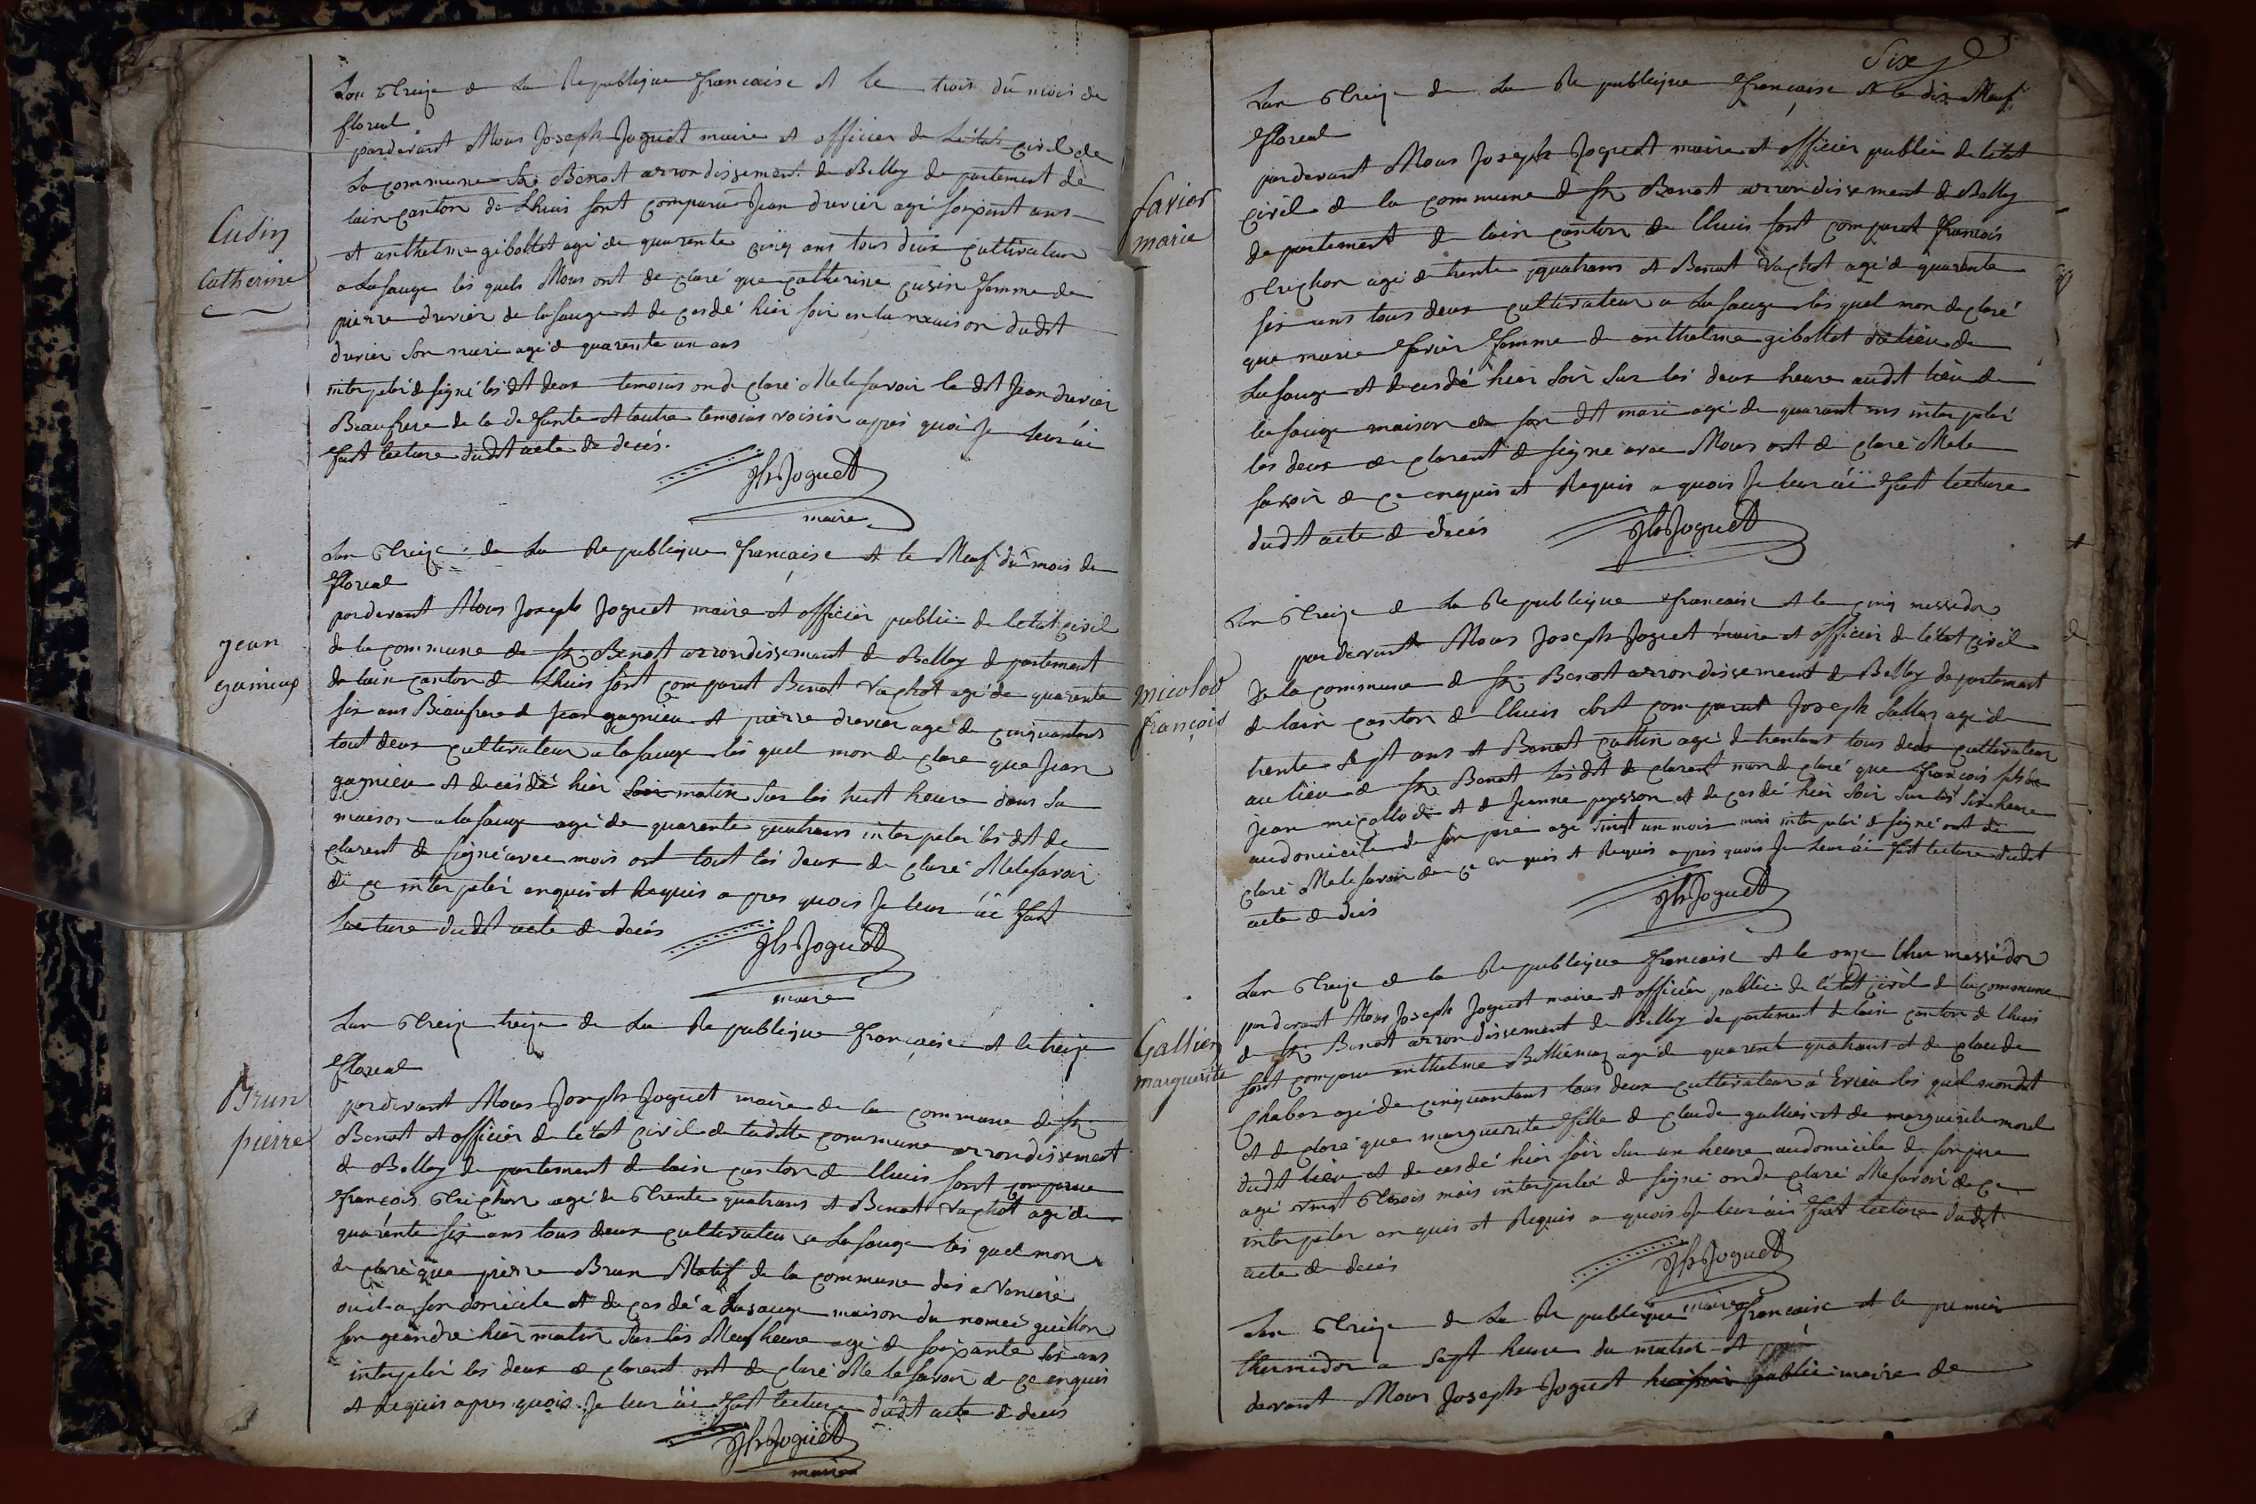 Cusin
Catherine
Lan Treize de La Republique francaise et le trois du mois de
floreal
pardevant Nous Joseph Joguet maire et officier de Létat civil de
La commune St Benoit arrondissement de Belley departement de
lain canton de Lhuis sont comparu Jean druvier agé soixant ans
et anthelme gibollet agé de quarente cinq ans tous deux cultivateur
a Lasauge les quels Nous ont de claré que catherine cusin femme de
pierre druvier de lasauge et de cesdé hier soir en la maison dudit
druvier son mari agé de quarente un ans
interpelé de signé les dit deux temoins on de claré Ne le savoir le dit Jean druvier
Beaufrere de la defunte et lautre temoins voisin apres quoi Je leur ai
fait lecture dudit acte de deces.
Jh Joguet
maire
jean
gamieux
Lan Treize de La Republique francaise et le Neuf du mois de
floreal
pardevant Nous Joseph Joguet maire et officier public de letat civil
de la commune de St Benoit arrondissement de Belley departement
de lain canton de Lhuis sont comparut Benoit Vachot agé de quarente
six ans Beaufrere de Jean gagnieu et pierre druvier agé de cinquantans
tout deux cultivateur a lasauge les quel mon de claré que Jean
gagnieu et de cesdé hier soir matin sur les huit heure dans sa
maison a lasauge agé de quarente quatrans interpelé les dit de
clarent de signé avec mois ont tout les deux de claré Ne le savoir
de ce interpelé enquis et Requis a pres quois Je leur ai fait
Lecture dudit acte de decès
Jh Joguet
maire
Brun
pierre
Lan Treize treize de La Republique francaise et le treize
floreal
pardevant Nous Joseph Joguet maire de la commune de St
Benoit et officier de letat civil de ladite commune arrondissement
de Belley departement de lain canton de lhuis sont comparue
francois Trichon agé de Trente quatrans et Benoit Vachot agé de
quarente six ans tous deux cultivateur a Lasauge les quel mon
de claré que pierre Brun Natif de la commune des
ou il a son domicile et de cesdé a Lasauge maison du nomé guillon
son geandre hier matin sur les Neuf heure agé de soixante six ans
interpelé les deux de clarent ont de claré Ne le savoir de ce enquis
et Requis apres quois Je leur ai fait lecture dudit acte de decès
Jh Joguet
maire
Six
favier
marie
Lan Treize de La Republique francaise et le dix Neuf
floreal
pardevant Nous Joseph Joguet maire et officier public de letat
civil de la commune de St Benoit arrondissement de Belley
departement de lain canton de lhuis sont comparut francois
Trichon agé de trente quatrans et Benoit Vachot agé de quarente
six ans tous deux cultivateur a Lasauge les quel mon de claré
que marie favier femme de anthelme gibollet du lieu de
Lasauge et de cesdé hier soir sur les deux heure audit lieu de
lasauge maison de son dit mari agé de quarant ans interpelé
les deux de clarent de signé avec Nous ont de claré Ne le
savoir de ce enquis et Requis a quois Je leur ai fait lecture
dudit acte de decès
Jh Joguet
micolod
francois
Lan Treize de La Republique francaise et le cinq messidor
pardevant Nous Joseph Joguet maire et officier de letat civil
de la commune de St Benoit arrondissement de Belley departement
de lain canton de lhuis sont comparut Joseph agé de
trente sept ans et Benoit cottin agé de trentans tous deux cultivateur
au lieu de St Benoit les dit de clarent mon de claré que francois fils de
jean micollod et de Jeanne pesson et de cesdé hier soir sur les six heure
audomicile de son pere agé vingt un mois mois interpelé de signé ont de
claré Ne le savoir de ce enquis et Requis apres quois Je leur ai fait lecture dudit
acte de decès
Jh Joguet
Gallien
marguerite
Lan Treize de la Republique francaise et le onze ther messidor
pardevant Nous Joseph Joguet maire et officier public de letat civil de la commune
de St Benoit arrondissement de Belley departement de lain canton de lhuis
sont comparu anthelme Billiemaz agé de quarente quatrans et de claude
Chaber agé de cinquantans tous deux cultivateur a Evieu les quel mondit
et de claré que marguerite fille de claude gallien et de marguerite morel
dudit lieu et de cesdé hier soir sur un heure audomicile de son pere
agé vingt Trois mois interpelé de signé on de claré Ne savoir de ce
interpeler enquis et Requis a quois Je leur ai fait lecture dudit
acte de decès
Jh Joguet
maire
Lan Treize de La Republique francaise et le premier
thermidor a sept heure du matin et par
devant Nous Joseph Joguet public maire de